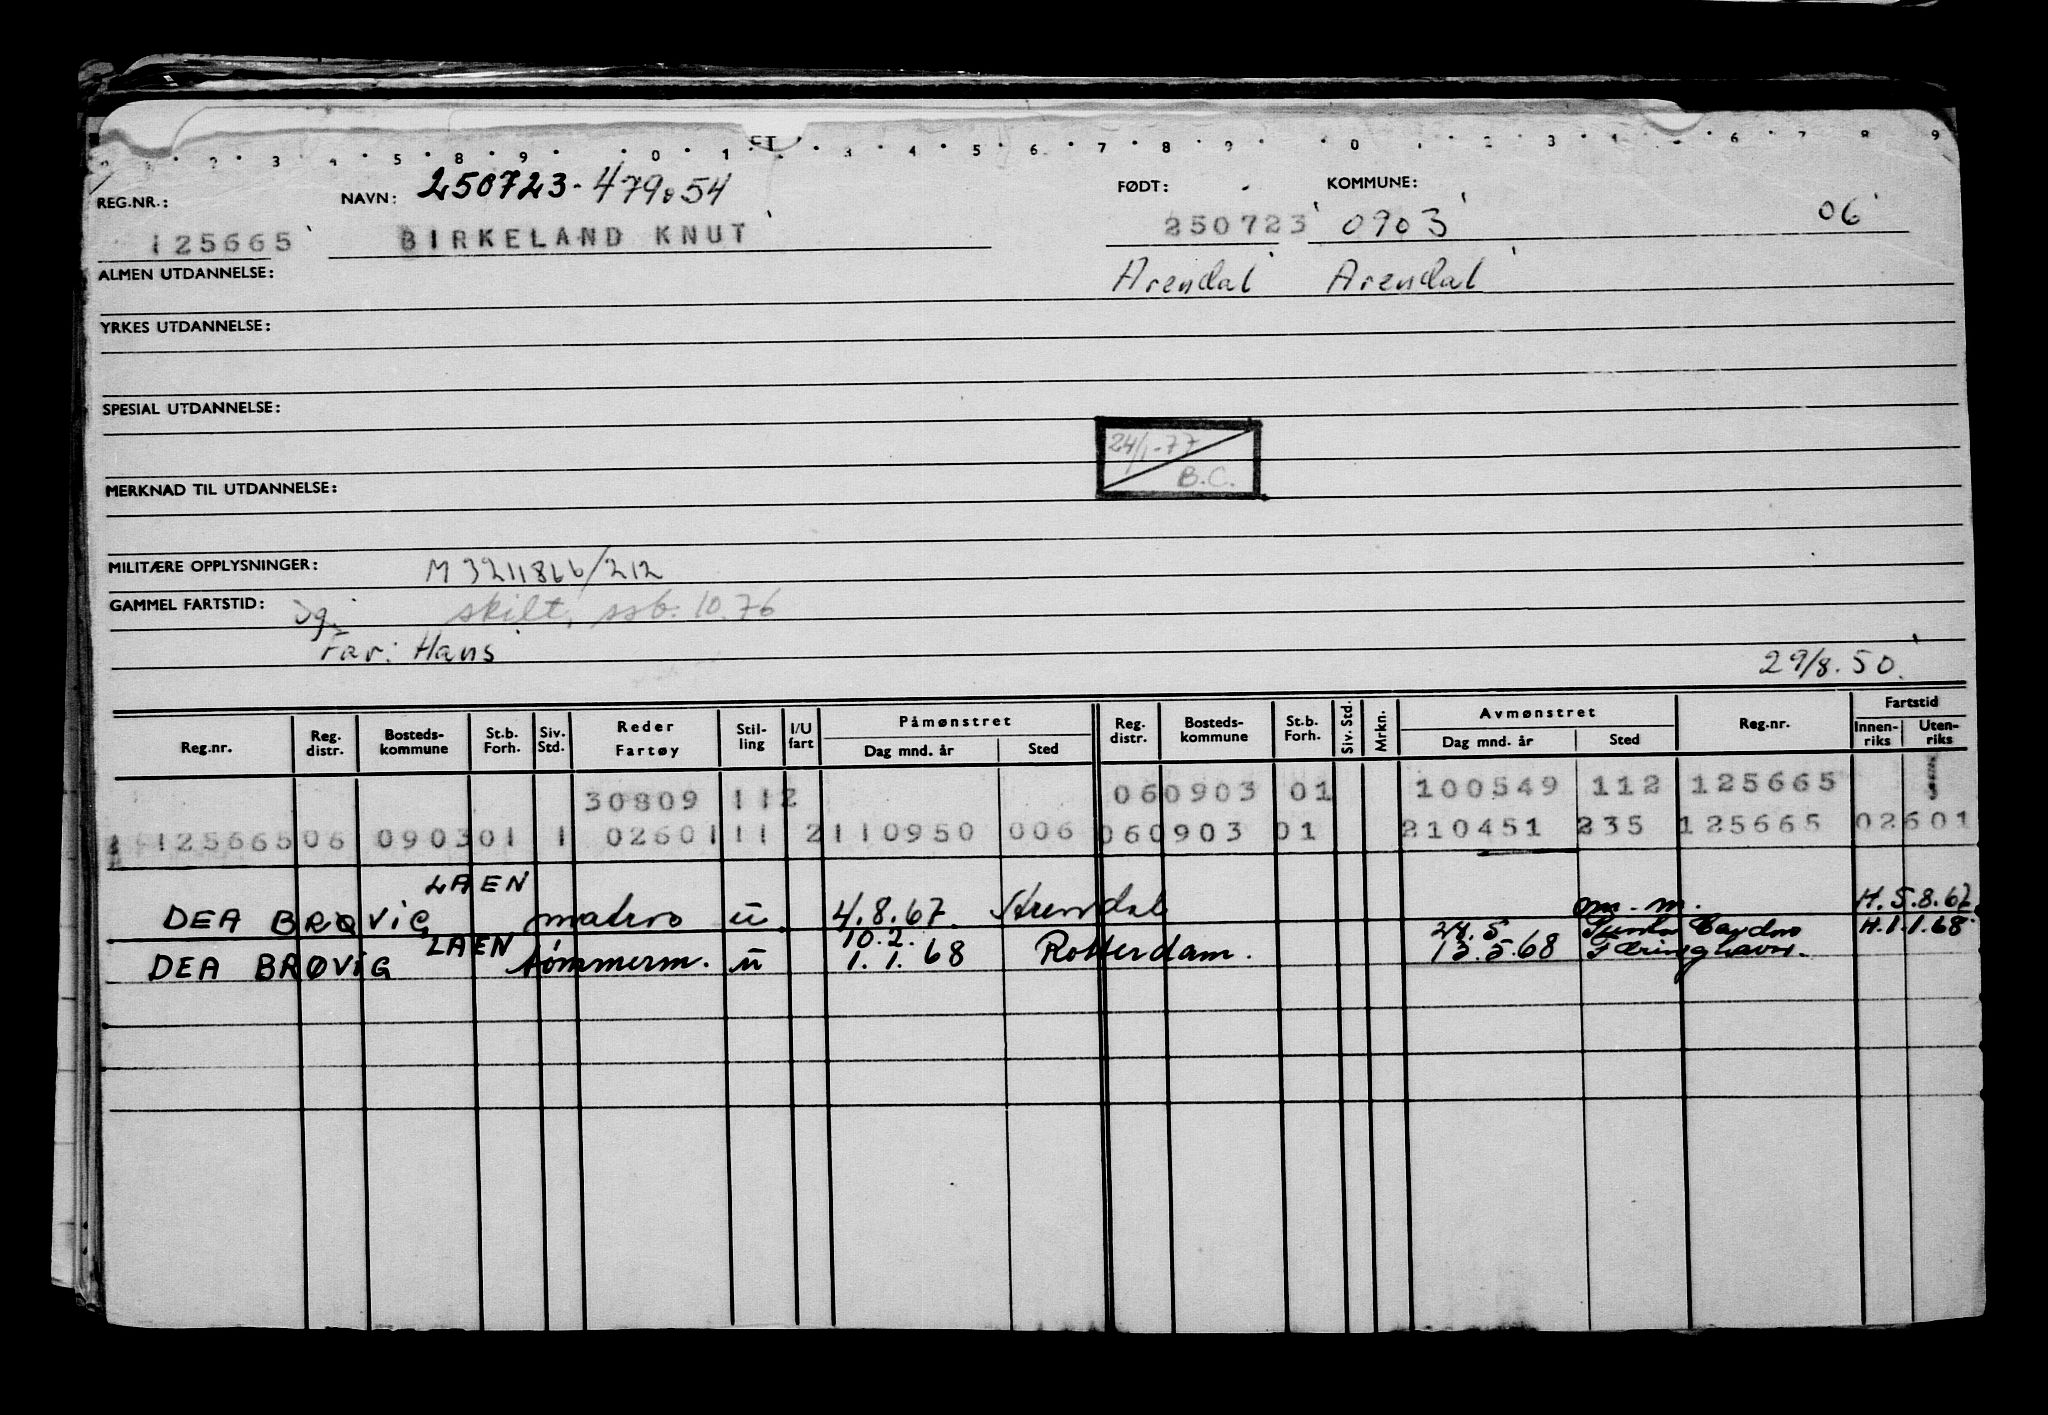 REG.NR.: NAVN: 250723-479054 FØDT: KOMMUNE:
125665 BIRKELAND KNUT 250723 0903 06
ALMEN UTDANNELSE: Arendal Arendal
YRKES UTDANNELSE:
SPESIAL UTDANNELSE:
24/1-77
B.C.
MERKNAD TIL UTDANNELSE:
MILITÆRE OPPLYSNINGER: M 3211866/212
GAMMEL FARTSTID: skilt, ssb. 10.76
Far: Hans
29/8.50
Reg.nr. Reg. distr. Bosteds-kommune St.b. Forh. Siv. Std. Reder Fartøy Stil-ling I/U fart Påmønstret Dag mnd. år Sted Reg. distr. Bosteds-kommune St.b. Forh. Siv. Std. Mrkn. Avmønstret Dag mnd. år Sted Reg.nr. Fartstid Innen-riks Uten-riks
30809 112 060903 01 100549 112 125665
125665 06 0903 01 1 02601 11 2 110950 006 060903 01 210451 235 125665 02601
LAEN
DEA BRØVIG matros u 4.8.67 Arendal m.m. H.5.8.67
LAEN 10.2. 24.5 H.1.1.68
DEA BRØVIG tømmerm. u 1.1.68 Rotterdam. 13.5.68 Færinghavn.